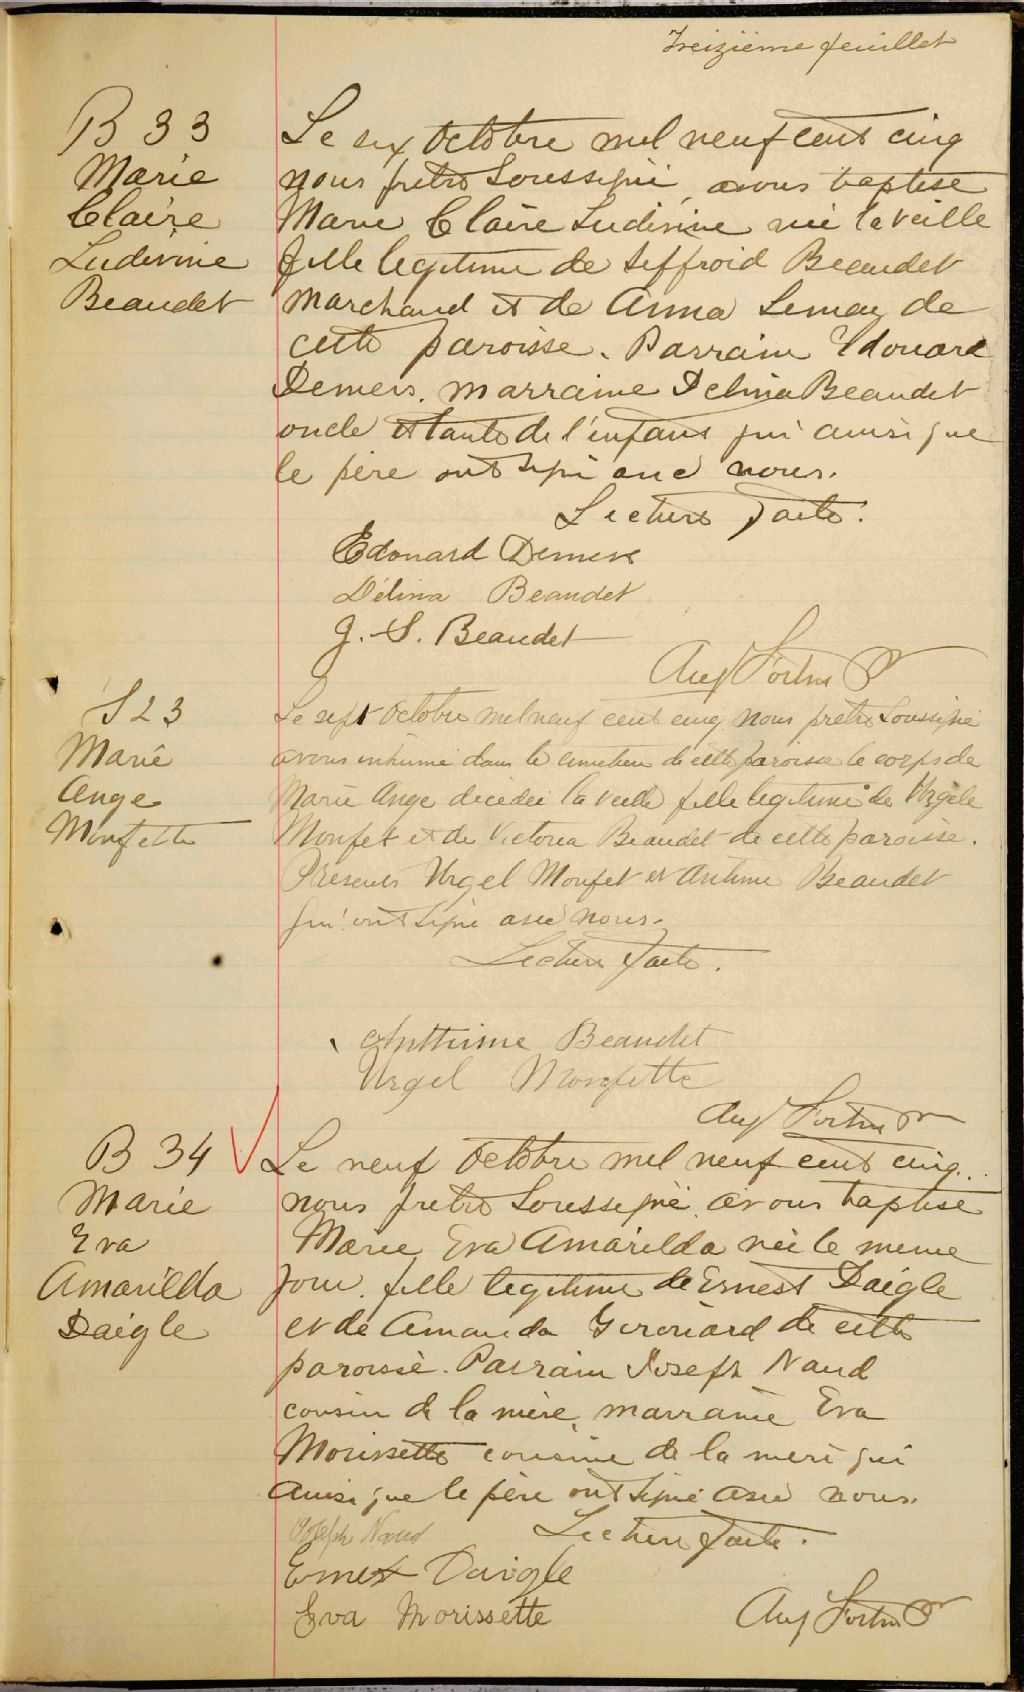 Treizième feuillet
B 33
Marie
Claire
Ludivine
Beaudet
Le six Octobre mil neuf cent cinq
nous pretre Soussigné avons baptisé
Marie Claire Ludivine née la veille
fille legitime de Seffroid Beaudet
marchand et de Anna Lemay de
cette paroisse. Parrain Edouard
Demers. marraine Delina Beaudet
oncle et tante de l'enfant qui ainsi que
le père ont signé avec nous.
Lecture faite.
Edouard Demers
Délina Beaudet
J. S. Beaudet
Aug Fortin Ptr
S 23
Marie
Ange
Monfette
Le sept Octobre mil neuf cent cinq nous pretre Soussigné
avons inhumé dans le cimetiere de cette paroisse le corps de
Marie Ange décédée la veille fille legitime de Urgèle
Monfet et de Victoria Beaudet de cette paroisse.
Présents Urgel Monfet et Antime Beaudet
qui ont signé avec nous.
Lecture faite.
Anthime Beaudet
Urgel Monfette
Aug Fortin Ptr
B 34
Marie
Eva
Amarilda
Daigle
Le neuf Octobre mil neuf cent cinq
nous pretre Soussigné avons baptisé
Marie Eva Amarilda née le meme
jour. fille legitime de Ernest Daigle
et de Amanda Girouard de cette
paroisse. Parrain Joseph Naud
cousin de la mère, marraine Eva
Morissette cousine de la mere qui
ainsi que le père ont signé avec nous.
Lecture faite.
Joseph Naud
Ernest Daigle
Eva Morissette
Aug Fortin Ptr